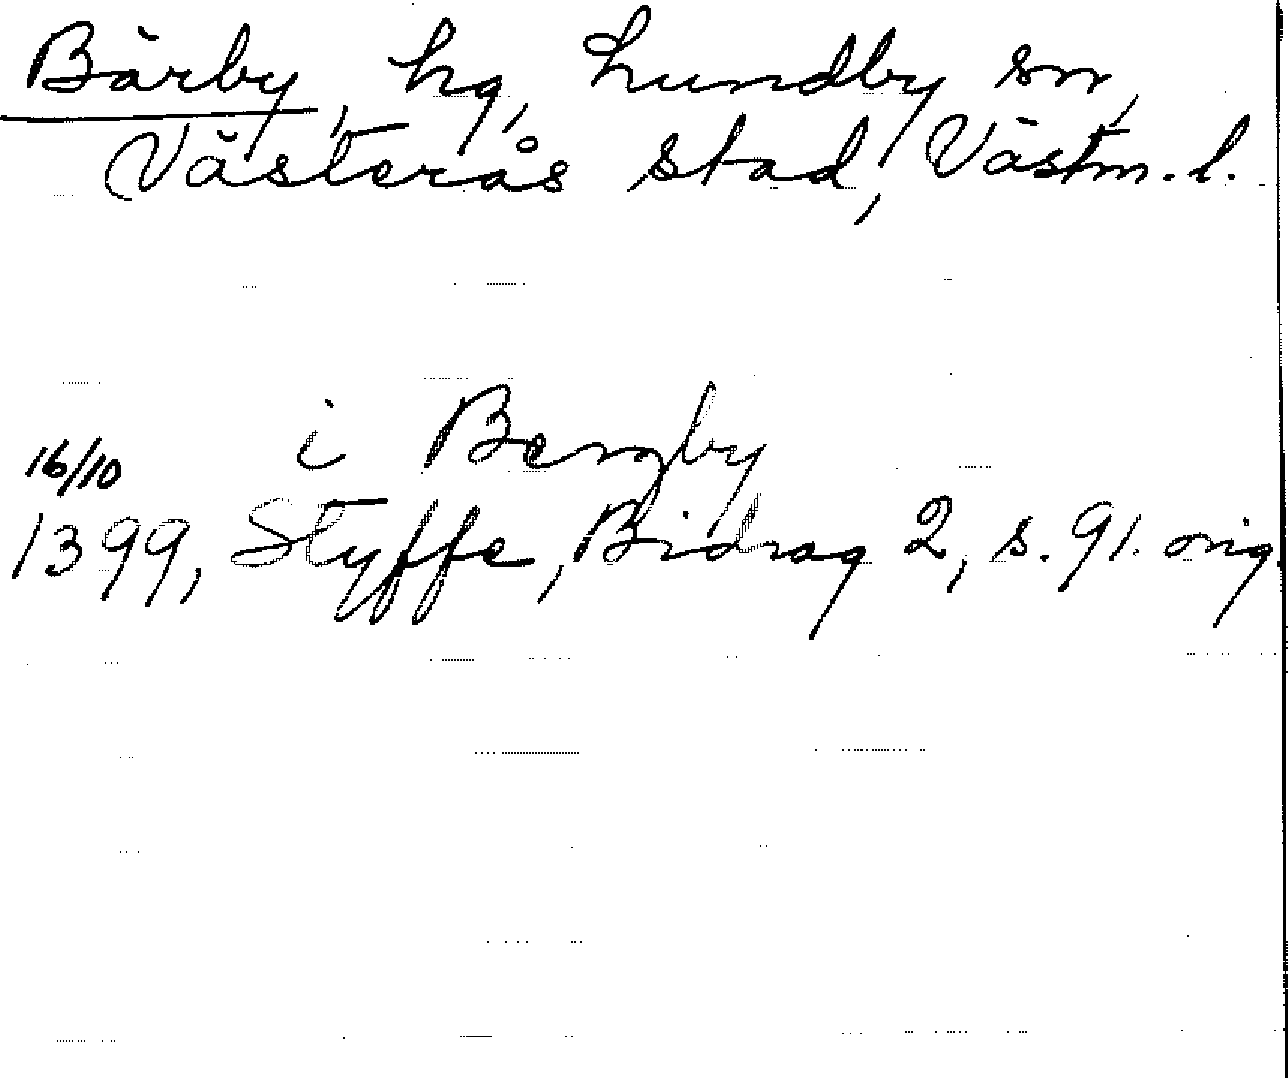 Bärby, hg, Lundby sn,
Västerås stad, Västm. l.
i Bergby
16/10
1399, Styffe, Bidrag 2, s. 91. orig